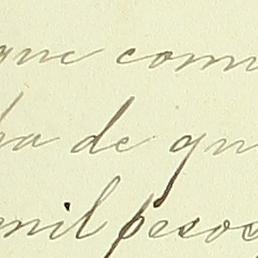 que com
ha de qu
mil pesos